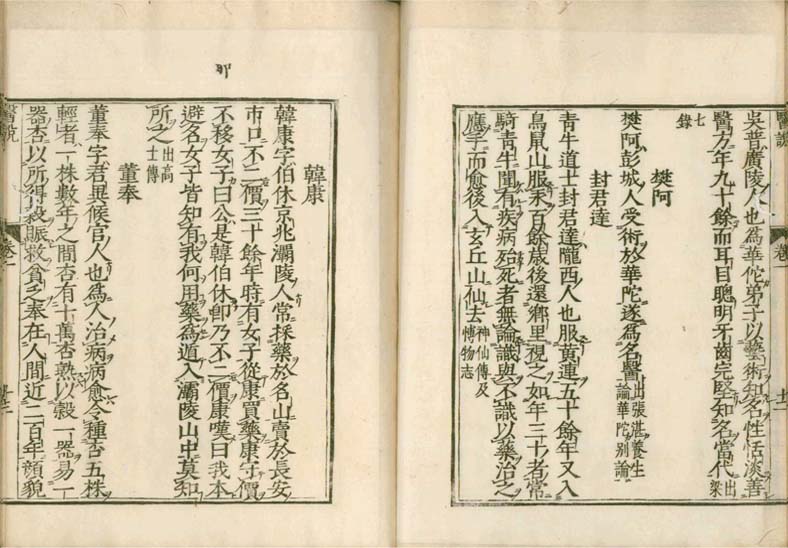 醫說 卷一 廿二
吳普廣陵人也爲華佗弟子以藝術知名性恬淡善
醫方年九十餘而耳目聰明牙齒完堅知名當代出梁
七錄
樊阿
樊阿彭城人受術於華陀遂爲名醫出張湛養生
論華陀別論
封君達
青牛道士封君達隴西人也服黃連五十餘年又入
鳥鼠山服汞百餘歲後還鄉里視之如年三十者常
騎青牛聞有疾病殆死者無論識與不識以藥治之
應手而愈後入玄丘山仙去神仙傳及
博物志
韓康
韓康字伯休京兆灞陵人常採藥於名山賣於長安
市口不二價三十餘年時有女子從康買藥康守價
不移女子曰公是韓伯休卽乃不二價康嘆曰我本
避名女子皆知有我何用藥爲遁入灞陵山中莫知
所之出高
士傳
董奉
董奉字君異候官人也爲人治病病愈令種杏五株
輕者一株數年之間杏有十萬杏熟以穀一器易一
器杏以所得穀賑救貧乏奉在人間近二百年顏貌
醫說 卷一 廿三